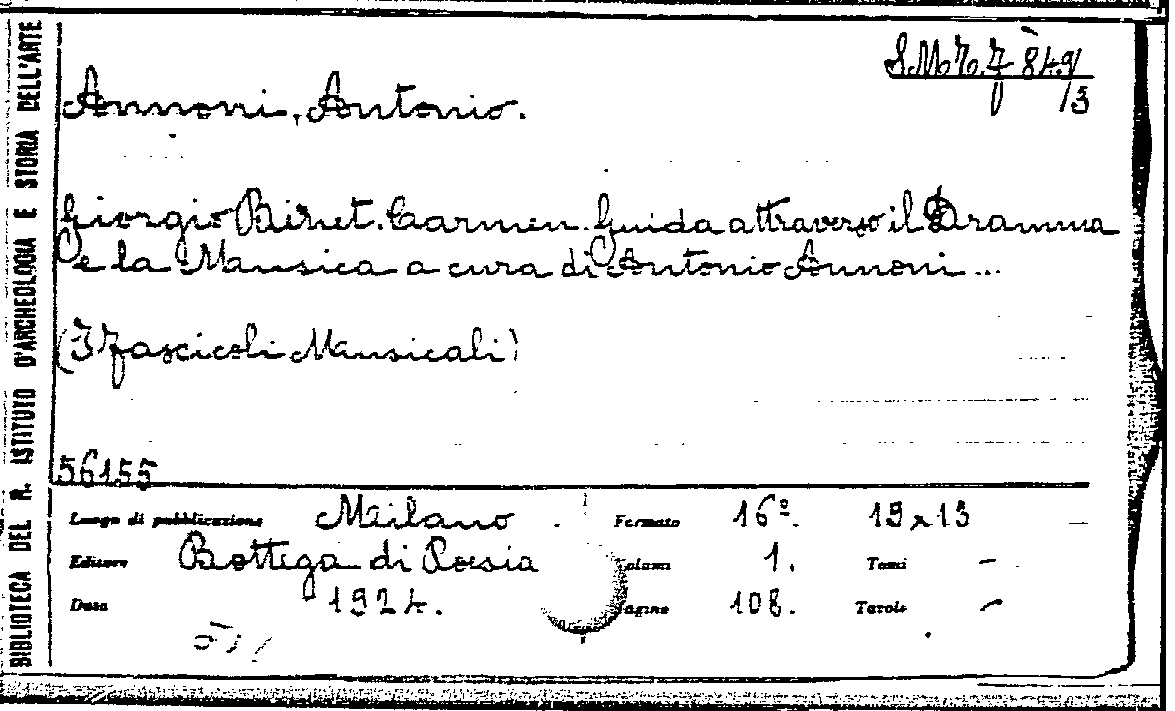 BIBLIOTECA DEL R. ISTITUTO D'ARCHEOLOGIA E STORIA DELL'ARTE
849/3
Annoni, Antonio.
Giorgio Bizet. Carmen. Guida attraverso il Dramma
e la Musica a cura di Antonio Annoni ...
(I fascicoli Musicali)
56155
Luogo di pubblicazione Milano Formato 16º. 19x13
Editore Bottega di Poesia Volumi 1. Tomi –
Data 1924. Pagine 108. Tavole –